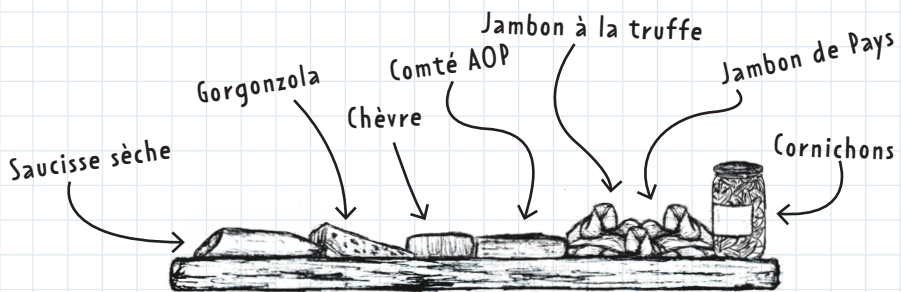 Saucisse sèche
Gorgonzola
Chèvre
Comté AOP
Jambon à la truffe
Jambon de Pays
Cornichons